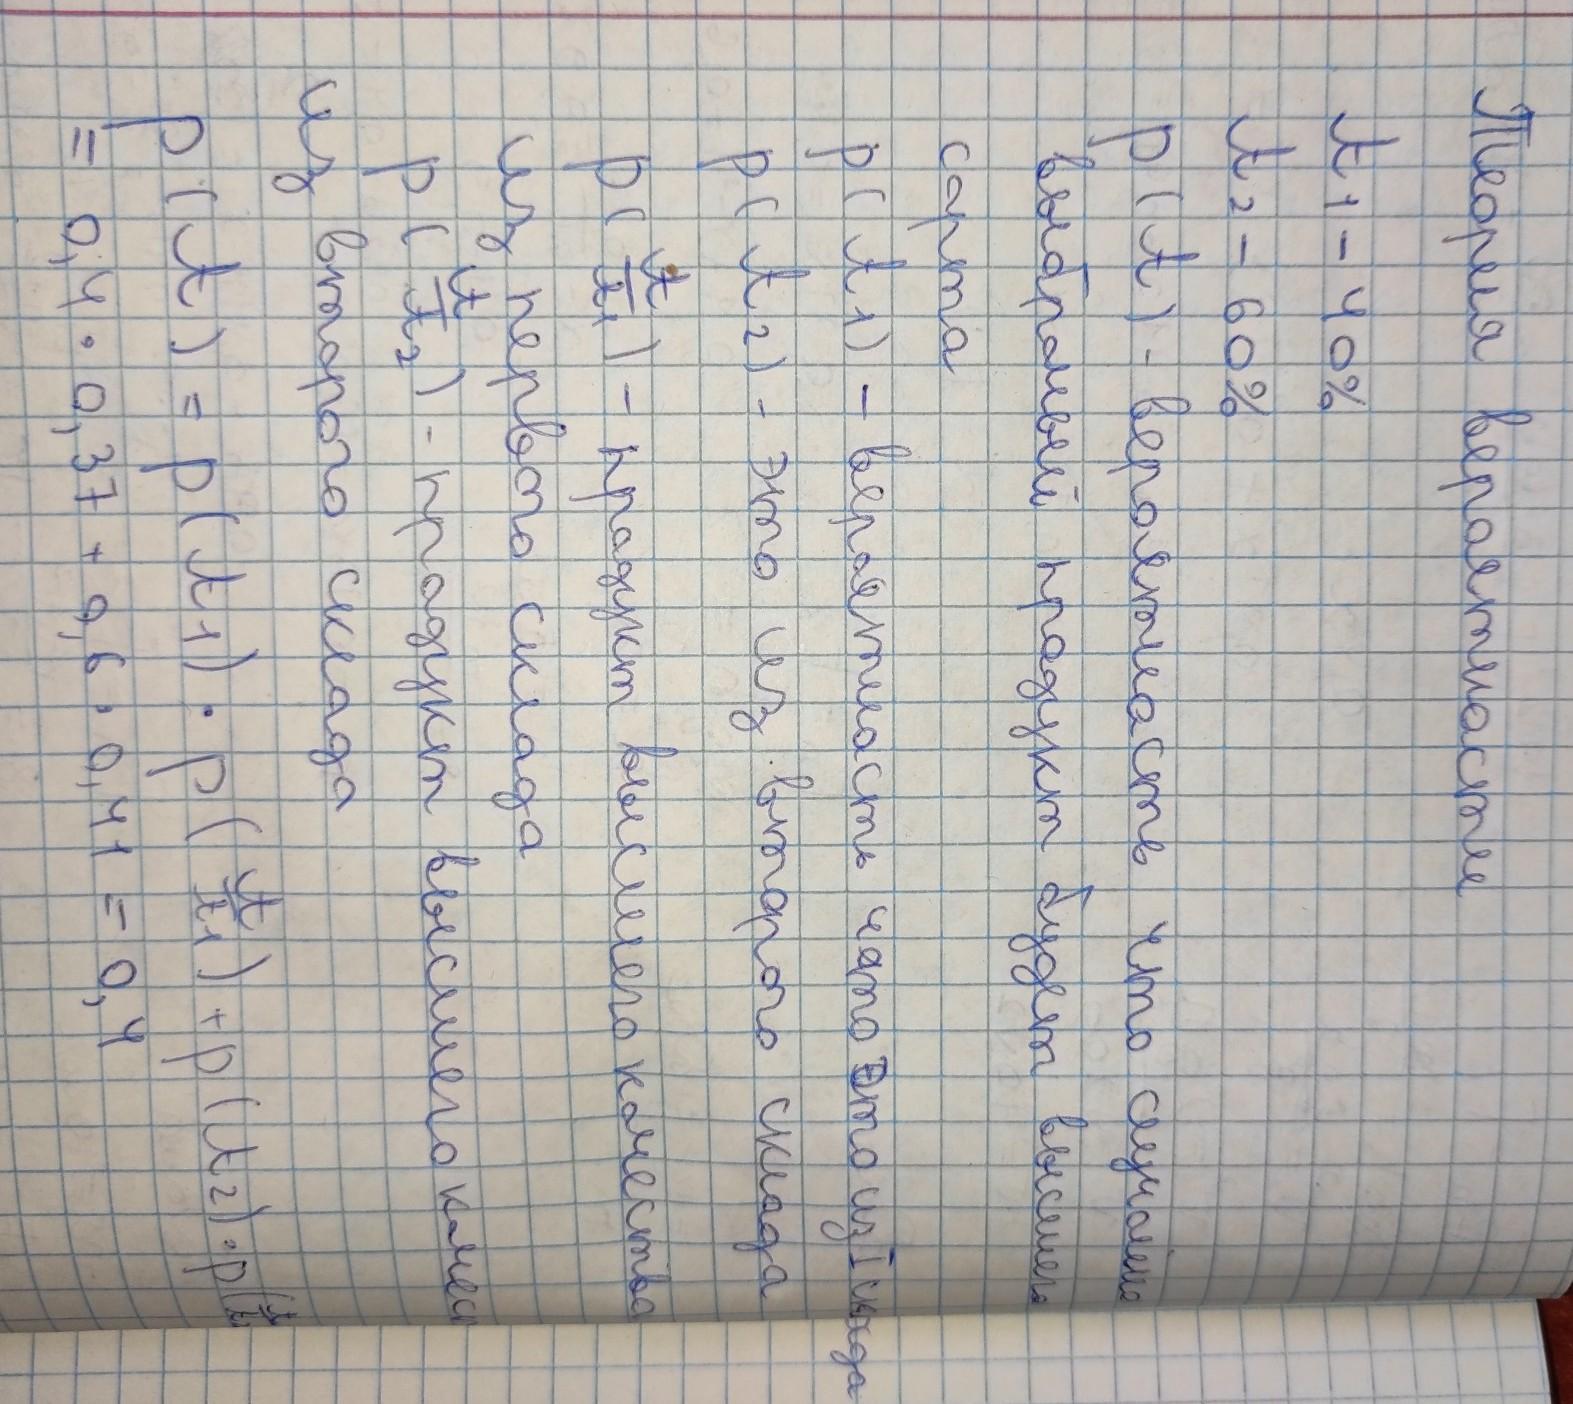 Теория вероятности
A1 - 40%
A2 - 60%
p(A) - вероятность что случайно
выбранный продукт будет высшего
сорта
p(A1) - вероятность что это из I склада
p(A2) - это из второго склада
p(A/A1) - продукт высшего качества
из первого склада
p(A/A2) - продукт высшего качес
из второго склада
p(A) = p(A1) · p(A/A1) + p(A2) · p(A/A2
= 0,4 · 0,37 + 0,6 · 0,41 = 0,4